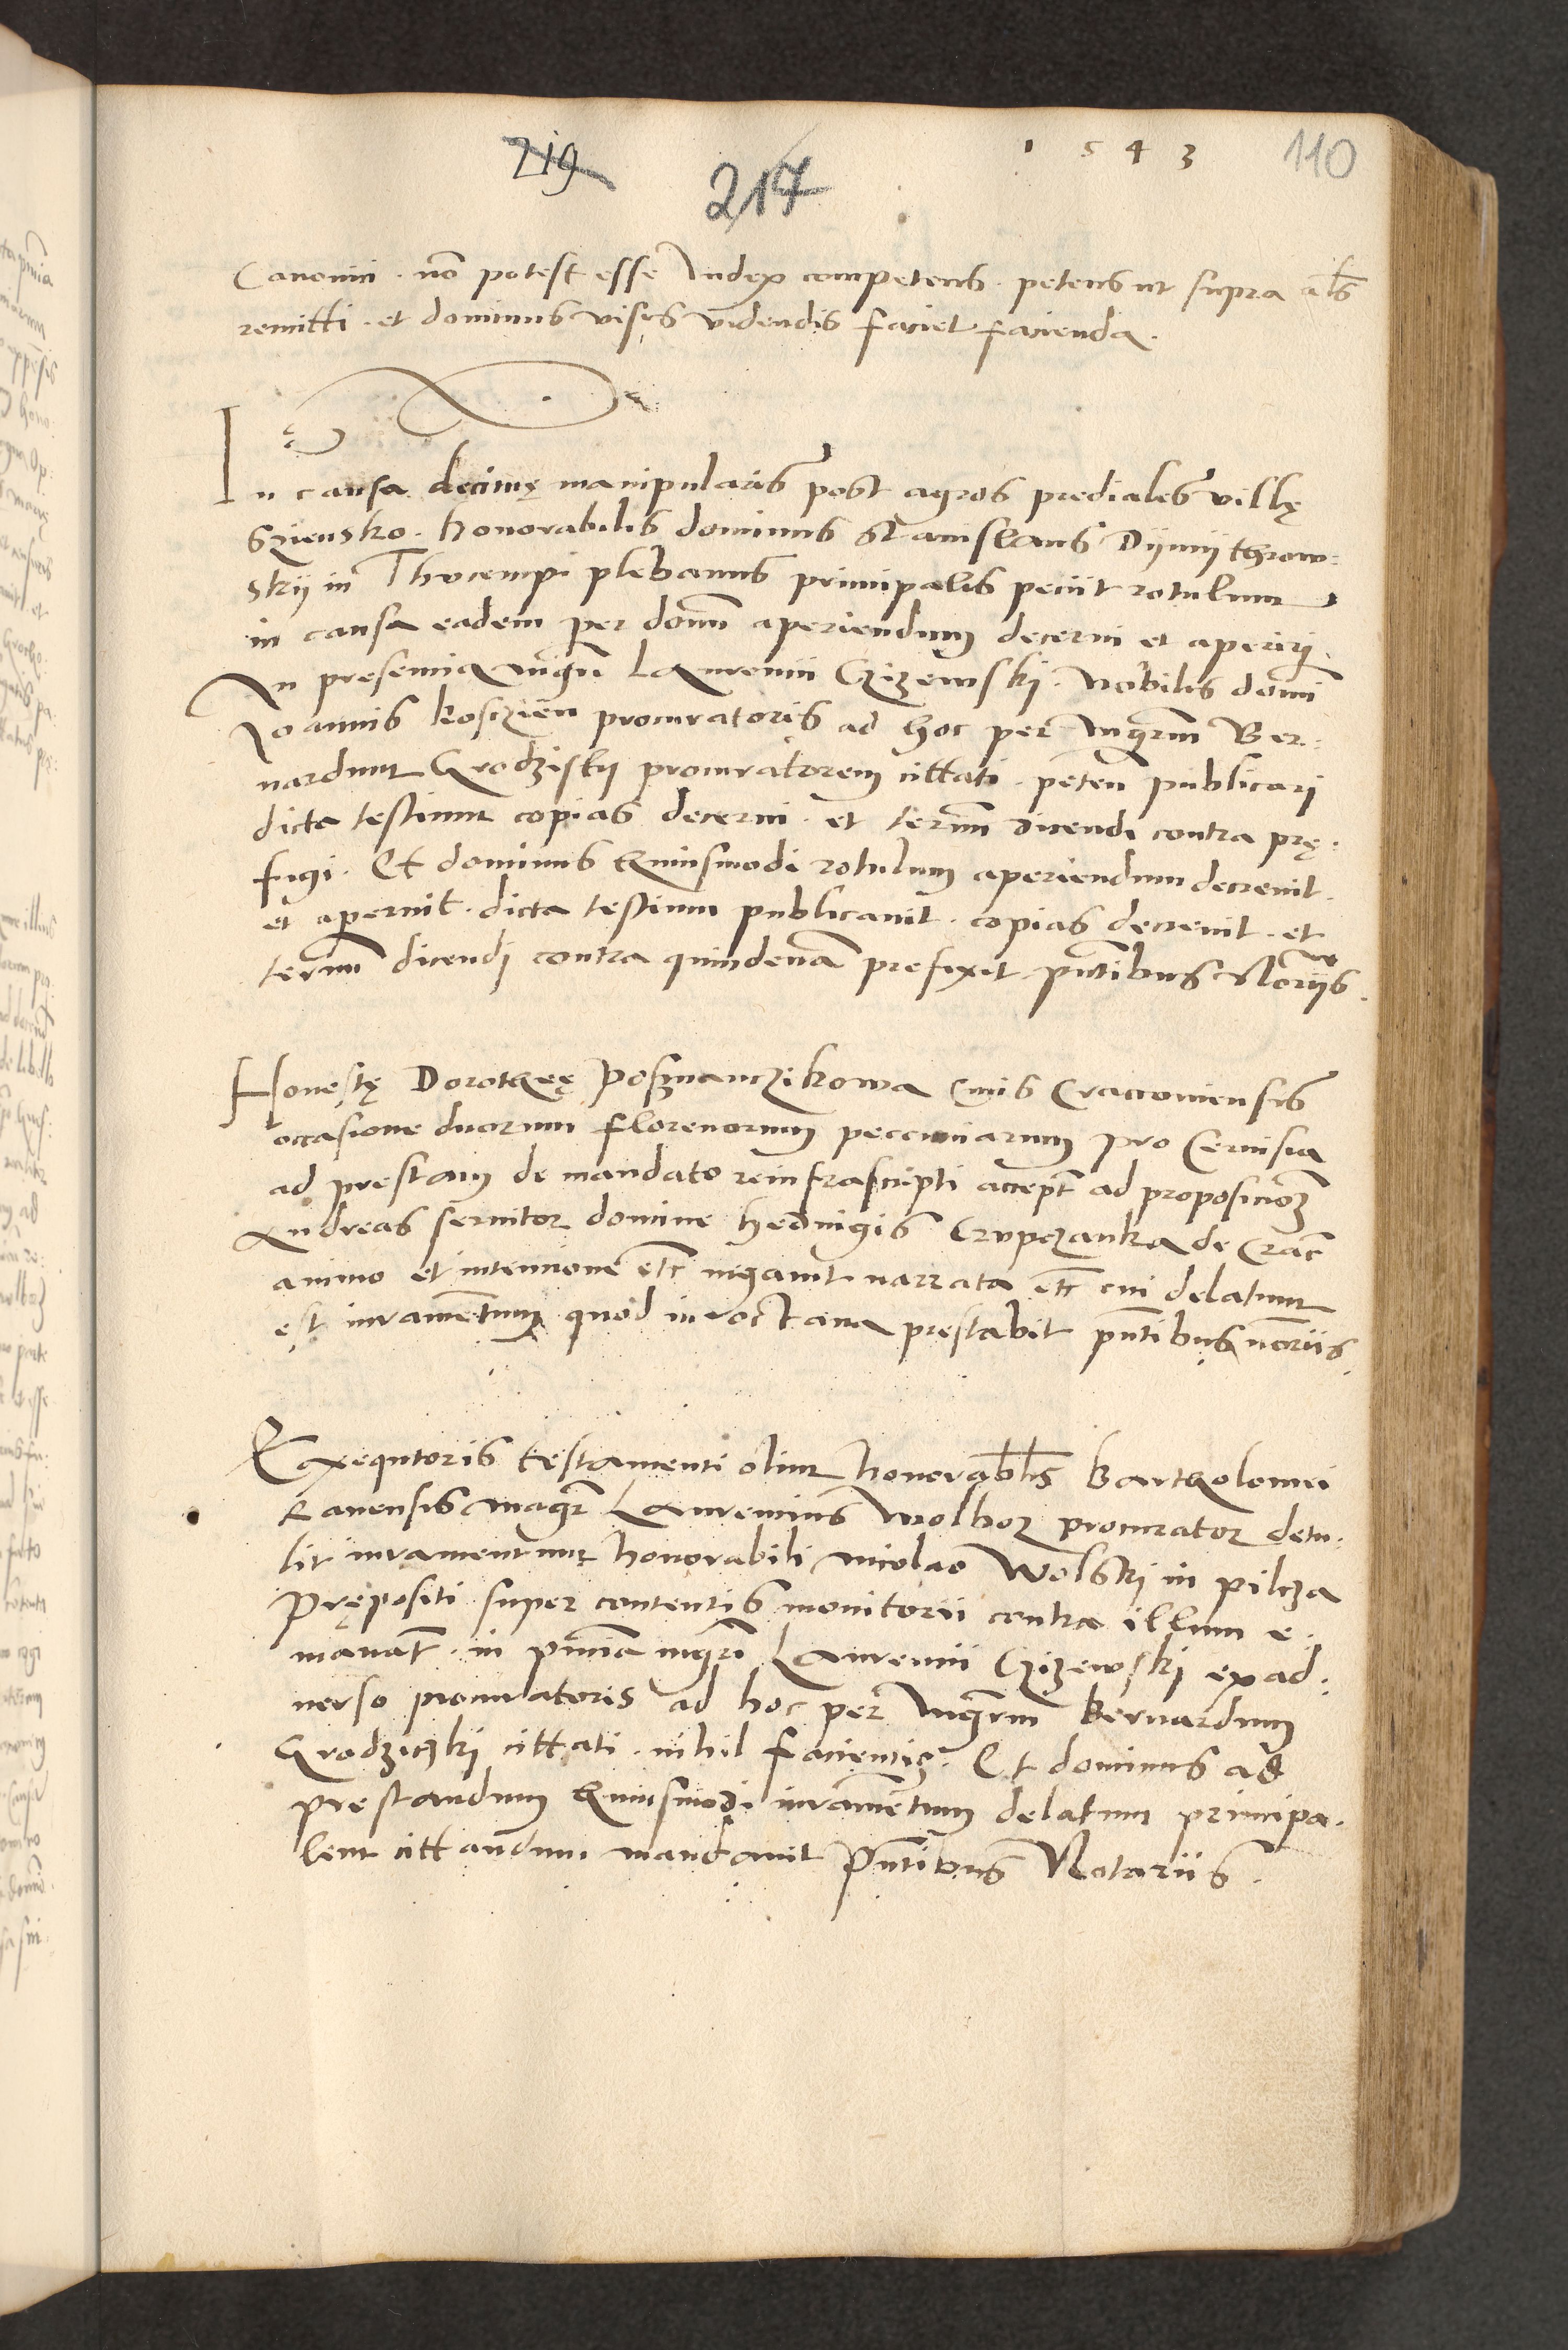 219
217
1543
110
Canonici. no potest esse Iudex competens. petens ut supra als
remitti. et dominus visis videndis faciet facienda.
In causa decimę manipularis post agros prediales villę
Sziensko. honorabilis dominus Stanislaus Dymythrow:
skij in Thocempi plebanus principalis peciit rotulum
in causa eadem per domi aperiendum decerni et aperiri.
In presencia mgri Laurencii Czizewski. Nobilis domi
Ioannis Koszien procuratoris ad hoc per mgrm Ber:
nardum Grodziskij procuratorem cittati. peten publicari
dicta testium copias decerni. et termi dicendi contra prę:
figi. Et dominus huiusmodi rotulum aperiendum decrevit.
et aperuit. dicta testium publicavit. copias decrevit. et
termi dicendi contra quindenam prefixit pntibus Noriis.
Honestę Dorotheę Poznanczikowa Civis Cracoviensis
occasione duorum florenorum peccuniarum pro Cervisia
ad prestam de mandato reinfrascripti accept ad proposicioem
Andreas servitor domine hedvigis Crupczanka de Crac
animo et intencione etc negavit narrata etc cui delatum
est iuramentum quod in octava prestabit pntibus noriis.
Exequtoris testamenti olim honorablis Bartholomei
Ravensis magr Laurencius Wolbor procurator detu:
lit iuramentum honorabili Nicolao Wolski in pilcza
Pręposito super contentis monitorii contra illum e:
manat. in pncia mgri Laurencii Czizewski ex ad:
verso procuratoris ad hoc per mgrm Bernardum
Grodziczki cittati. nihil facientis. Et dominus ad
prestandum huiusmodi iuramentum delatum principa:
lem cittandum mandavit Pntibus Notariis.